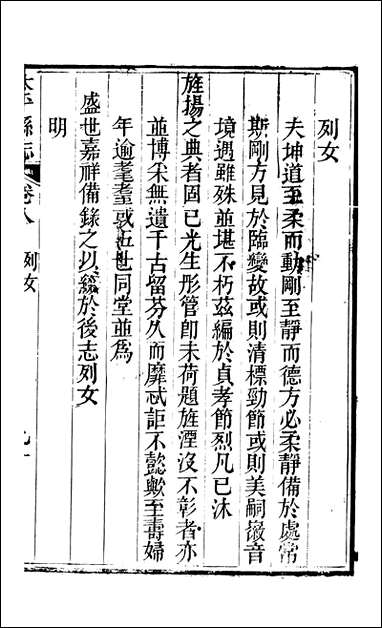 列女
夫坤道至柔而動剛至靜而德方必柔靜備於處常
斯剛方見於臨變故或則清標勁節或則美嗣徽音
境遇雖殊並堪不朽茲編於貞孝節烈凡已沐
旌揚之典者固已光生彤管卽未荷題旌湮沒不彰者亦
並博采無遺千古留芬久而靡忒詎不懿歟至壽婦
年逾耄耋或五世同堂並爲
盛世嘉祥備錄之以綴於後志列女
明
縣志
卷八
列女